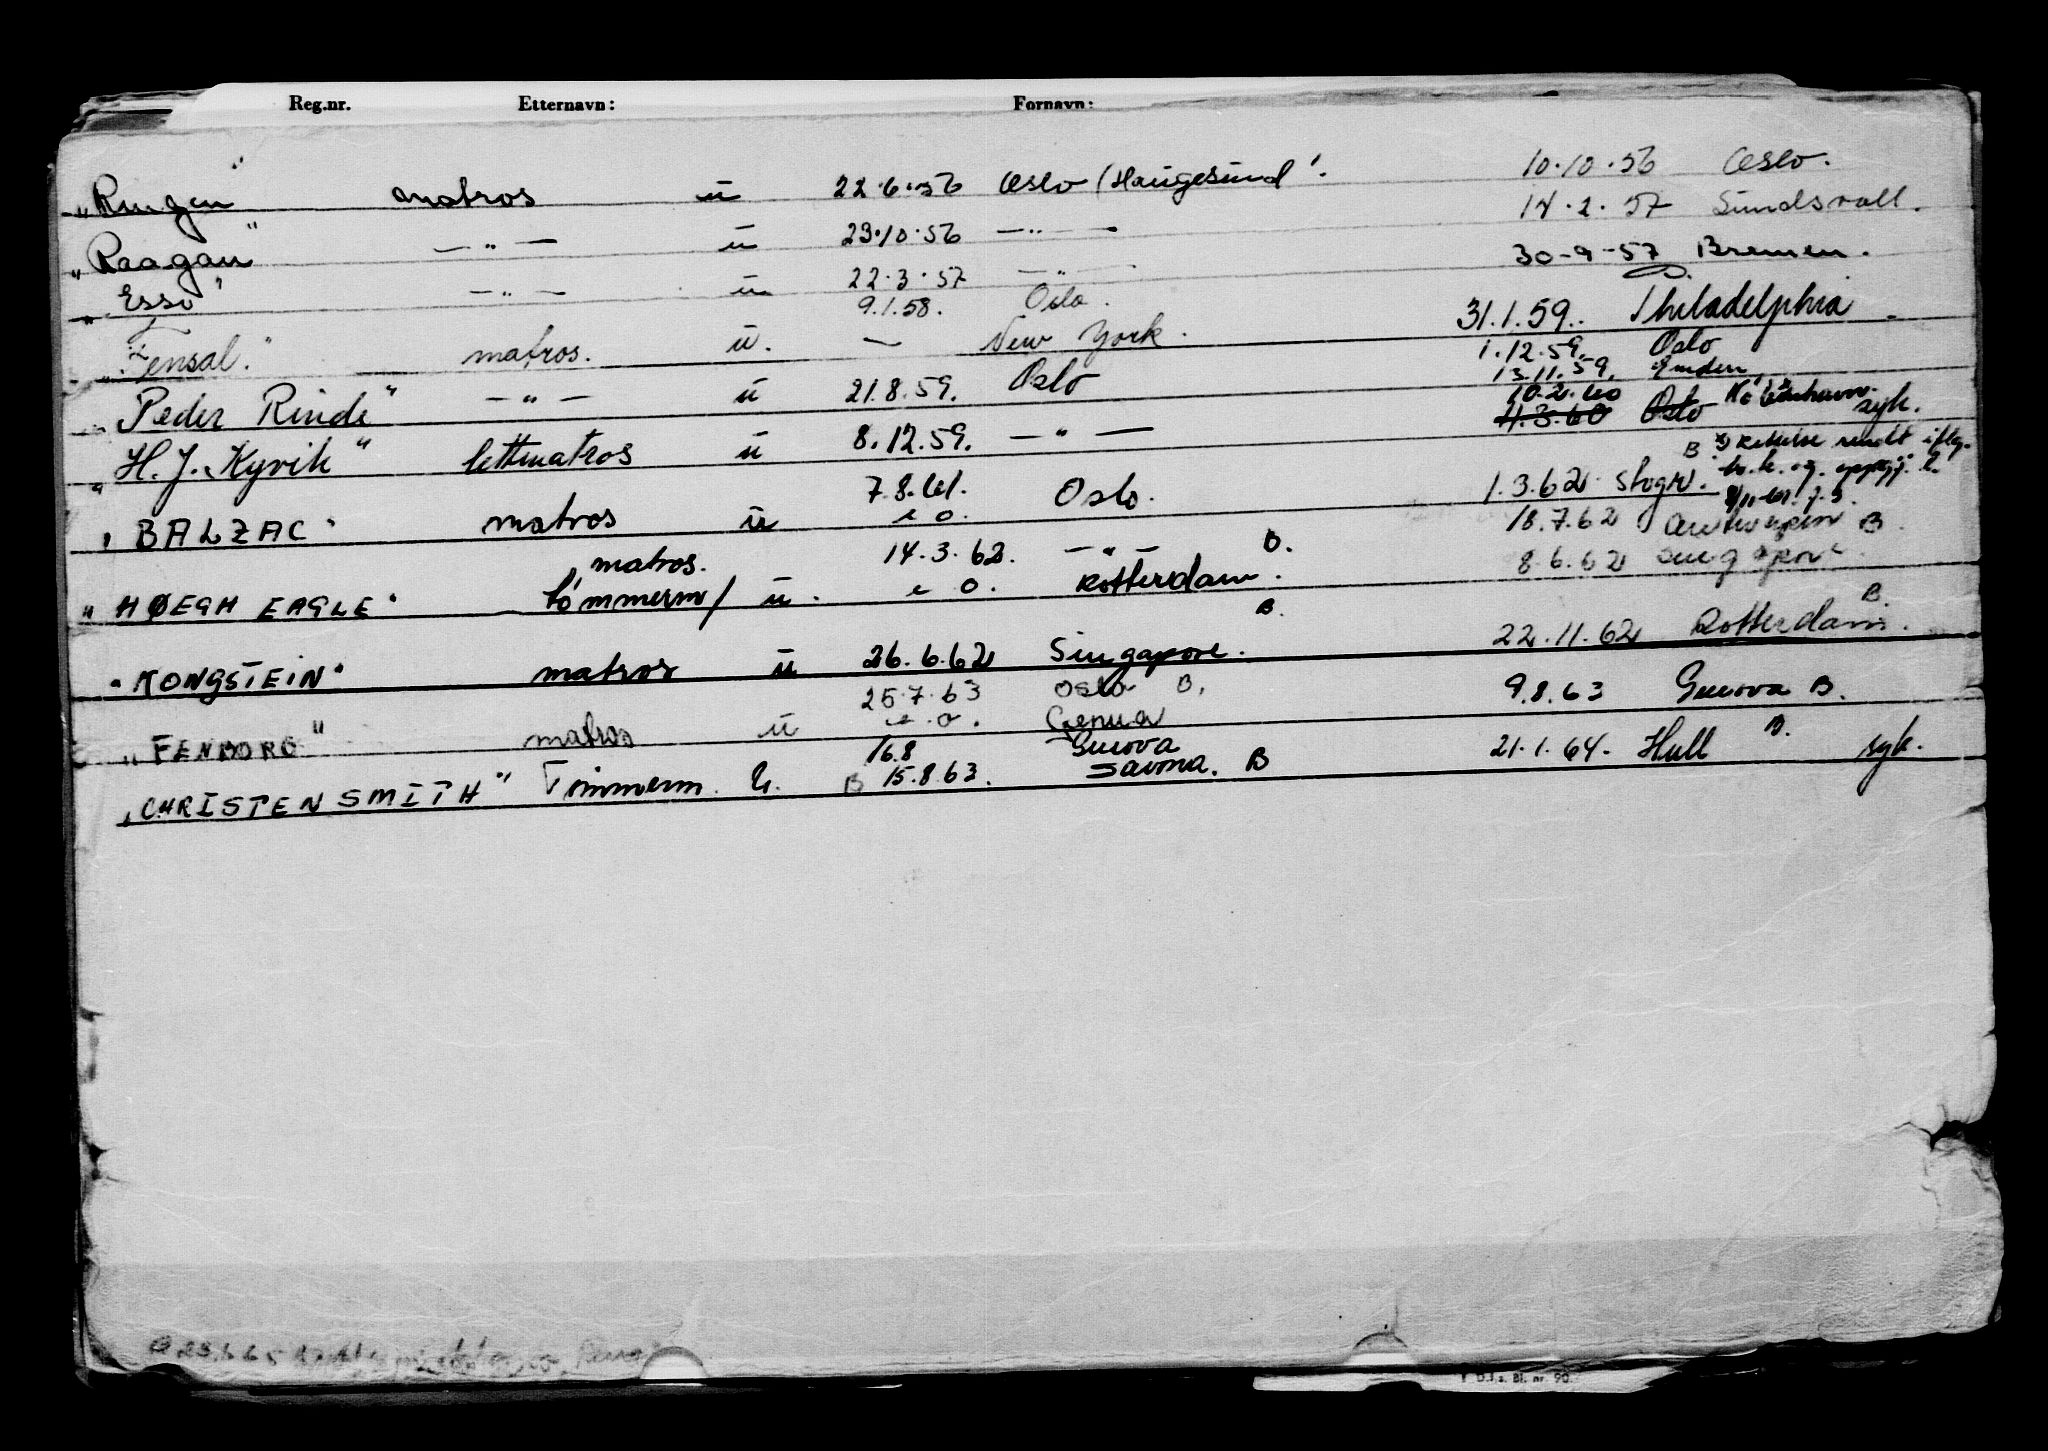 Reg.nr. Etternavn: Fornavn:
"Ringen" matros ü 22.6.56 Oslo (Haugesund). 10.10.56 Oslo.
"Raagan" — " — ü 23.10.56 — " — 14.2.57 Sundsvall.
"Esso" — " — ü 22.3.57 — " — 30-9-57 Bremen.
9.1.58. Oslo.
"Fensal." matros. ü. — New York. 31.1.59. Philadelphia.
1.12.59. Oslo
"Peder Rinde" — " — ü 21.8.59. Oslo 13.11.59. Emden
10.2.60 København.
"H.J. Kyvik" lettmatros ü 8.12.59. — " — 11.3.60 Oslo syk.
B x) Rettelse
7.8.61. 1.3.62 Slvgr.
"BALZAC" matros ü e o. Oslo.
matros. 14.3.62. — " — B. 18.7.62 Antwerpen B.
"HØEGH EAGLE" tømmerm/ ü. e o. Rotterdam. 8.6.62 Singapore.
B. B.
"KONGSTEIN" matros ü 26.6.62 Singapore. 22.11.62 Rotterdam.
25.7.63 Oslo B.
"FENBORG" matros ü e o. Genua 9.8.63 Genova B.
16.8 Genova B.
"CHRISTEN SMITH" Tømmerm. U. B 15.8.63. Savona. B 21.1.64. Hull syk.
D.f.s. Bl. nr. 90.